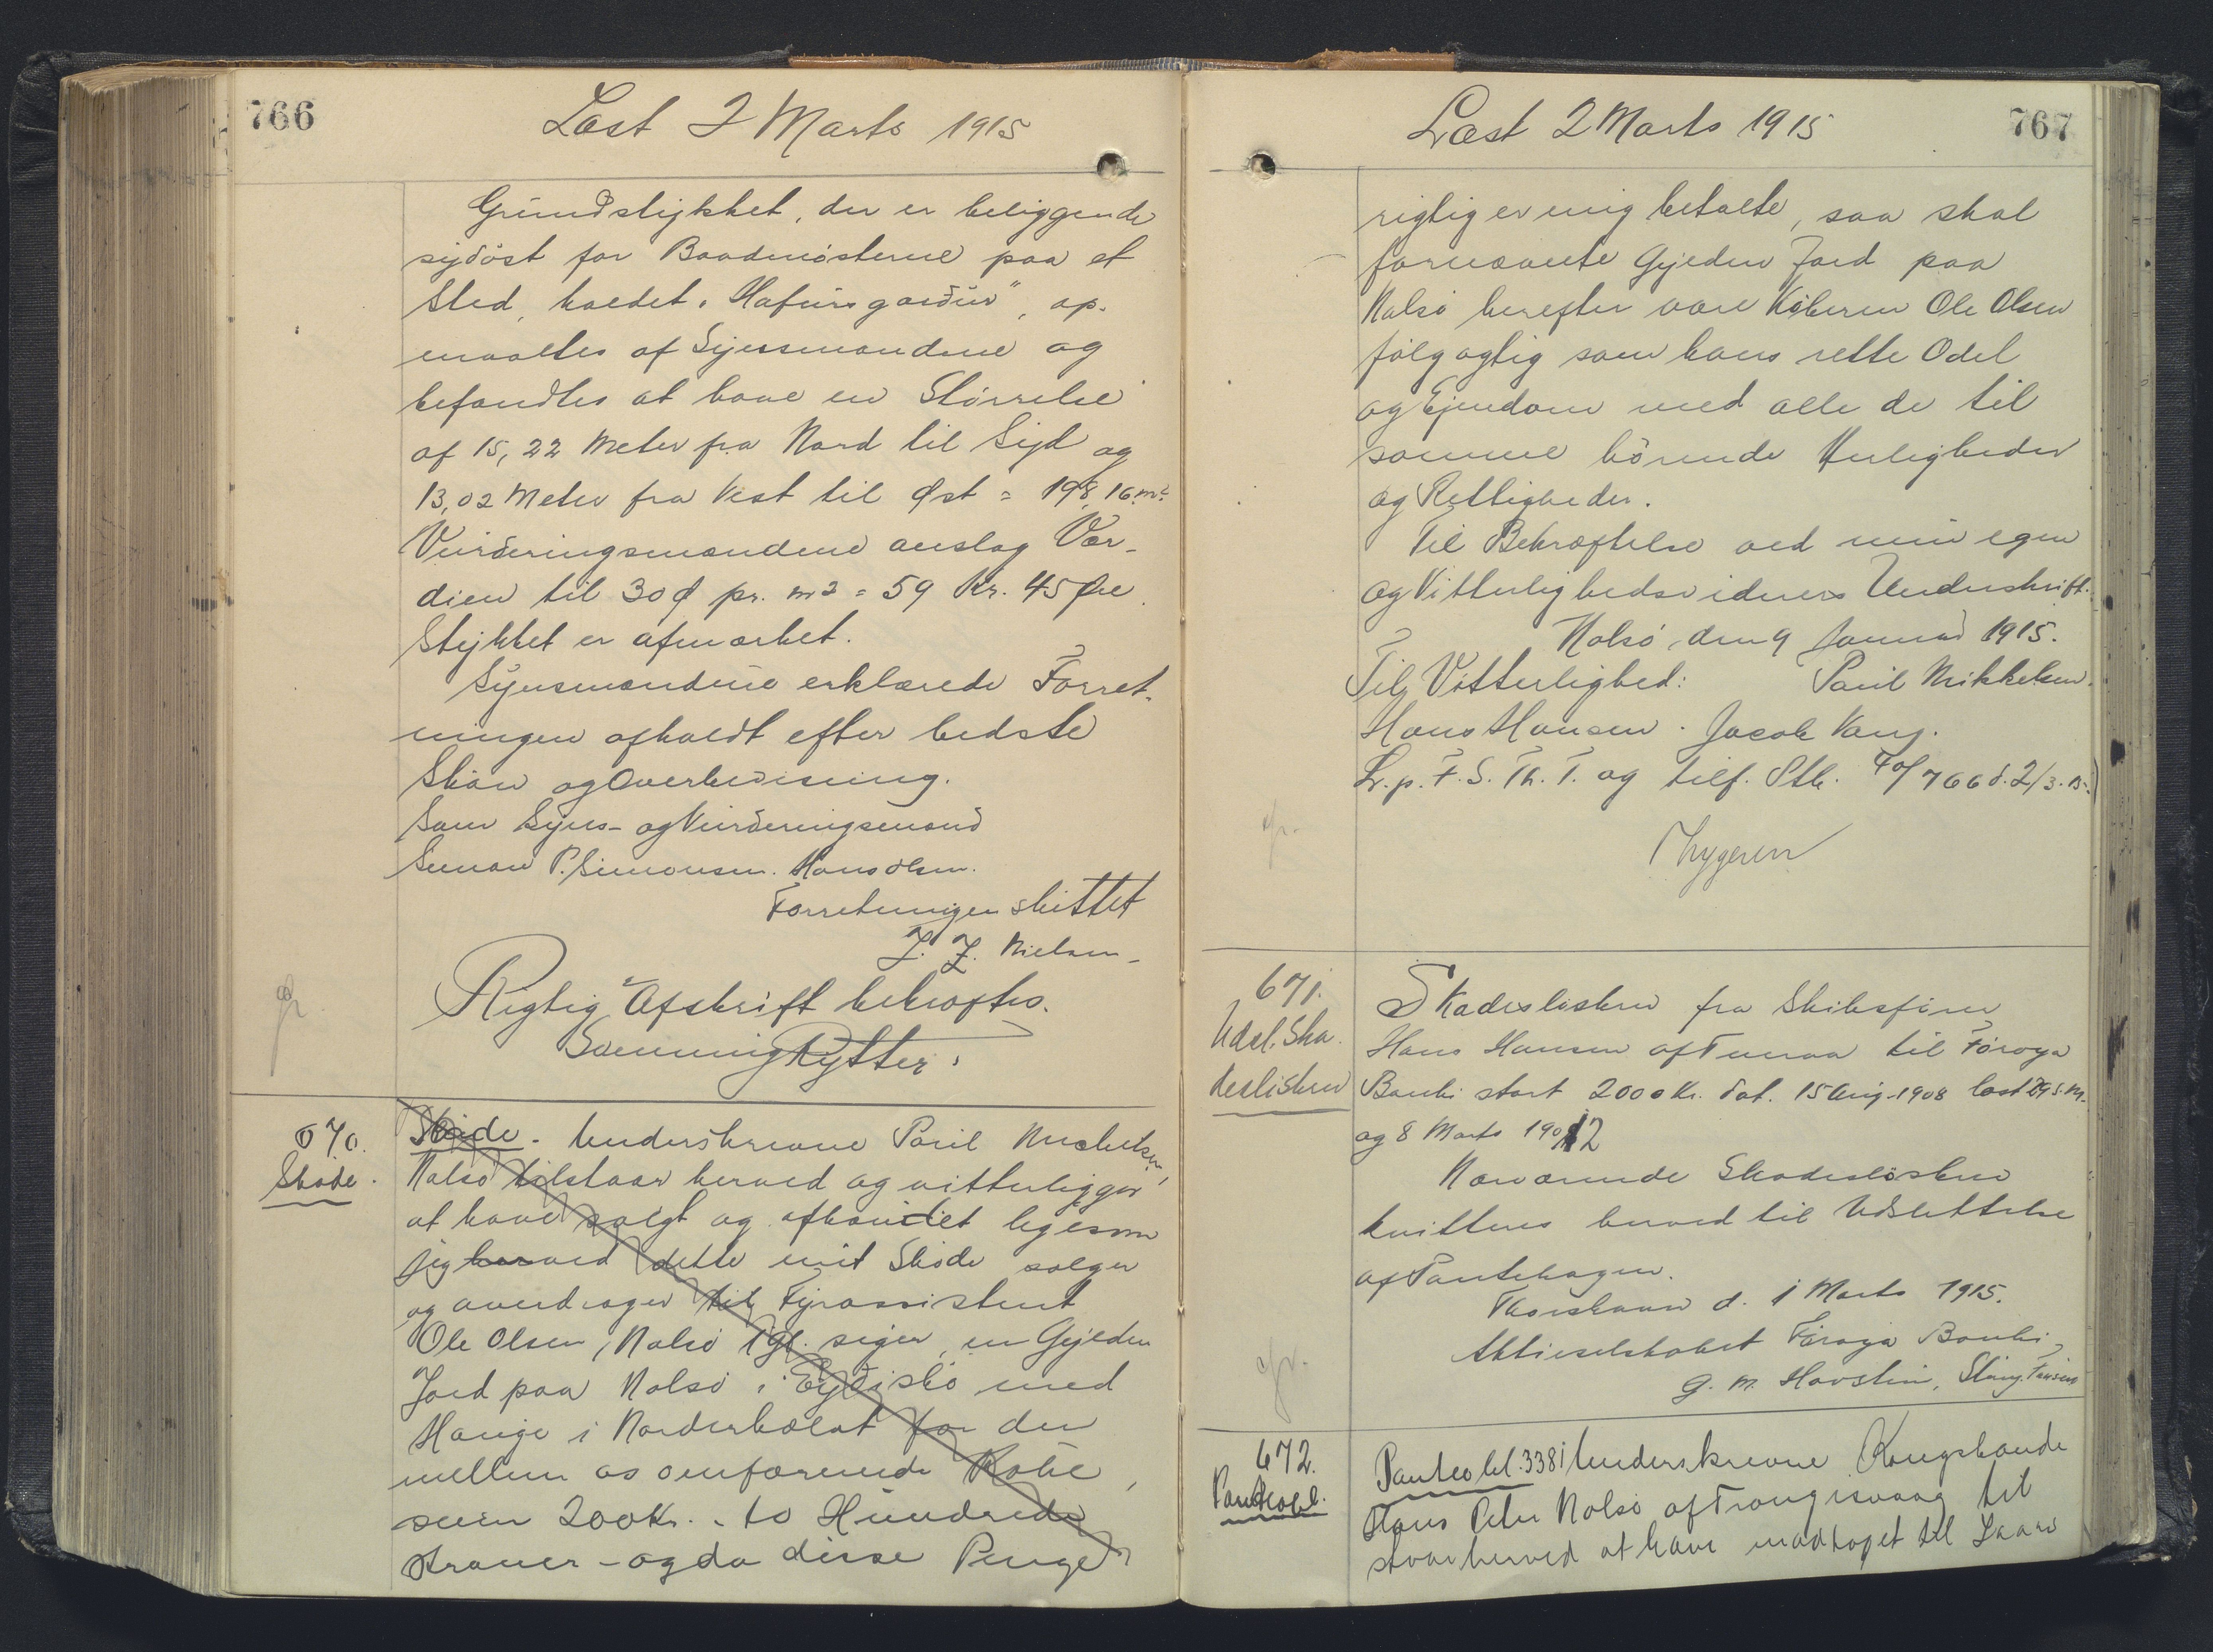 766
Læst 2 Marts 1915
Grundstykket, der er beliggende
sydöst for Baadnösterne paa et
Sted, kaldet "Hafursgardur", op-
maaltes af Synsmændene og
befandtes at have en Størrelse
af 15,22 Meter fra Nord til Syd og
13,02 Meter fra Vest til Øst = 198,16 m²
Vurderingsmændene anslog Vær-
dien til 30 Ø pr. m² = 59 Kr. 45 Øre.
Stykket er afmærket.
Synsmændene erklærede Forret-
ningen afholdt efter bedste
Skön og Overbevisning.
Som Syns- og Vurderingsmænd
Simon P. Simonsen. Hans Olsen.
Forretningen sluttet
J. J. Nielsen
Rigtig Afskrift bekræftes.
Rytter.
670.
Skøde.
Skøde. Underskrevne Poul Michelsen,
Nolsö tilstaar herved og vitterliggør
at have solgt og afhændet ligesom
jeg herved dette mit Skøde sælger
og overdrager til Fyrassistent
Ole Olsen, Nolsö 1 gl. siger en Gylden
Jord paa Nolsö i med
Hauge i Norderhålvt for den
mellem os omforenede Købe
sum 200 Kr. - to Hundrede
Kroner - og da disse Penge
767
Læst 2 Marts 1915
rigtig er mig betalte, saa skal
fornævnte Gylden Jord paa
Nolsö herefter være Köberen Ole Olsen
følgagtig som hans rette Odel
og Ejendom med alle de til
samme hörende Herligheder
og Rettigheder.
Til Bekræftelse ved min egen
og Vitterlighedsvidners Underskrift.
Nolsö, den 9 Januar 1915.
Til Vitterlighed: Poul Mikkelsen.
Hans Hansen. Jacob Vang.
L. p. F. S. Th. T. og tilf. Prtk. Fol 766 d. 2/3. 15.
Thygesen
671.
Udsl. Ska
desløsbrev
Skadesløsbrev fra Skibsfører
Hans Hansen af Tueraa til Föroya
Banki stort 2000 Kr. dat. 15 Aug. 1908 læst 29 s. M.
og 8 Marts 1912
Nærværende Skadeslösbrev
kvitteres herved til Udslettelse
af Pantebogen.
Thorshavn d. 1 Marts 1915.
Aktieselskabet Föroya Banki
672.
Panteobl.
Panteobl. 338 i Underskrevne Kongsbonde
Hans Peter Nolsö af Trangisvaag til
staar herved at have modtaget til Laans